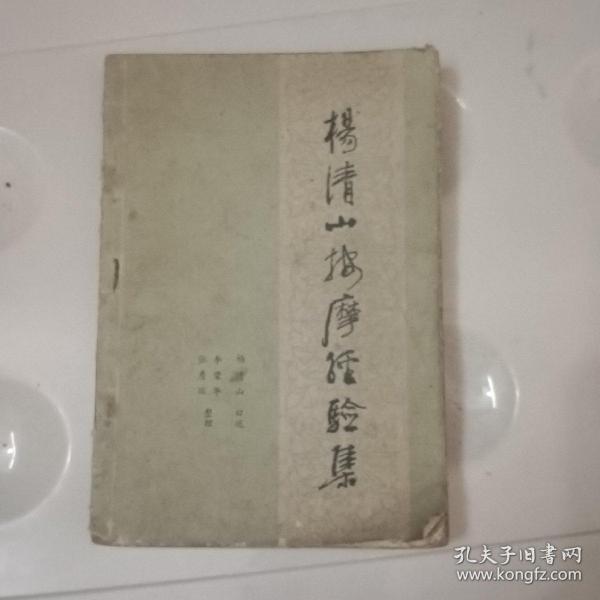 楊清山按摩經驗集
楊清山 口述
李榮華
整理
孔夫子旧書网
www.kongfz.com